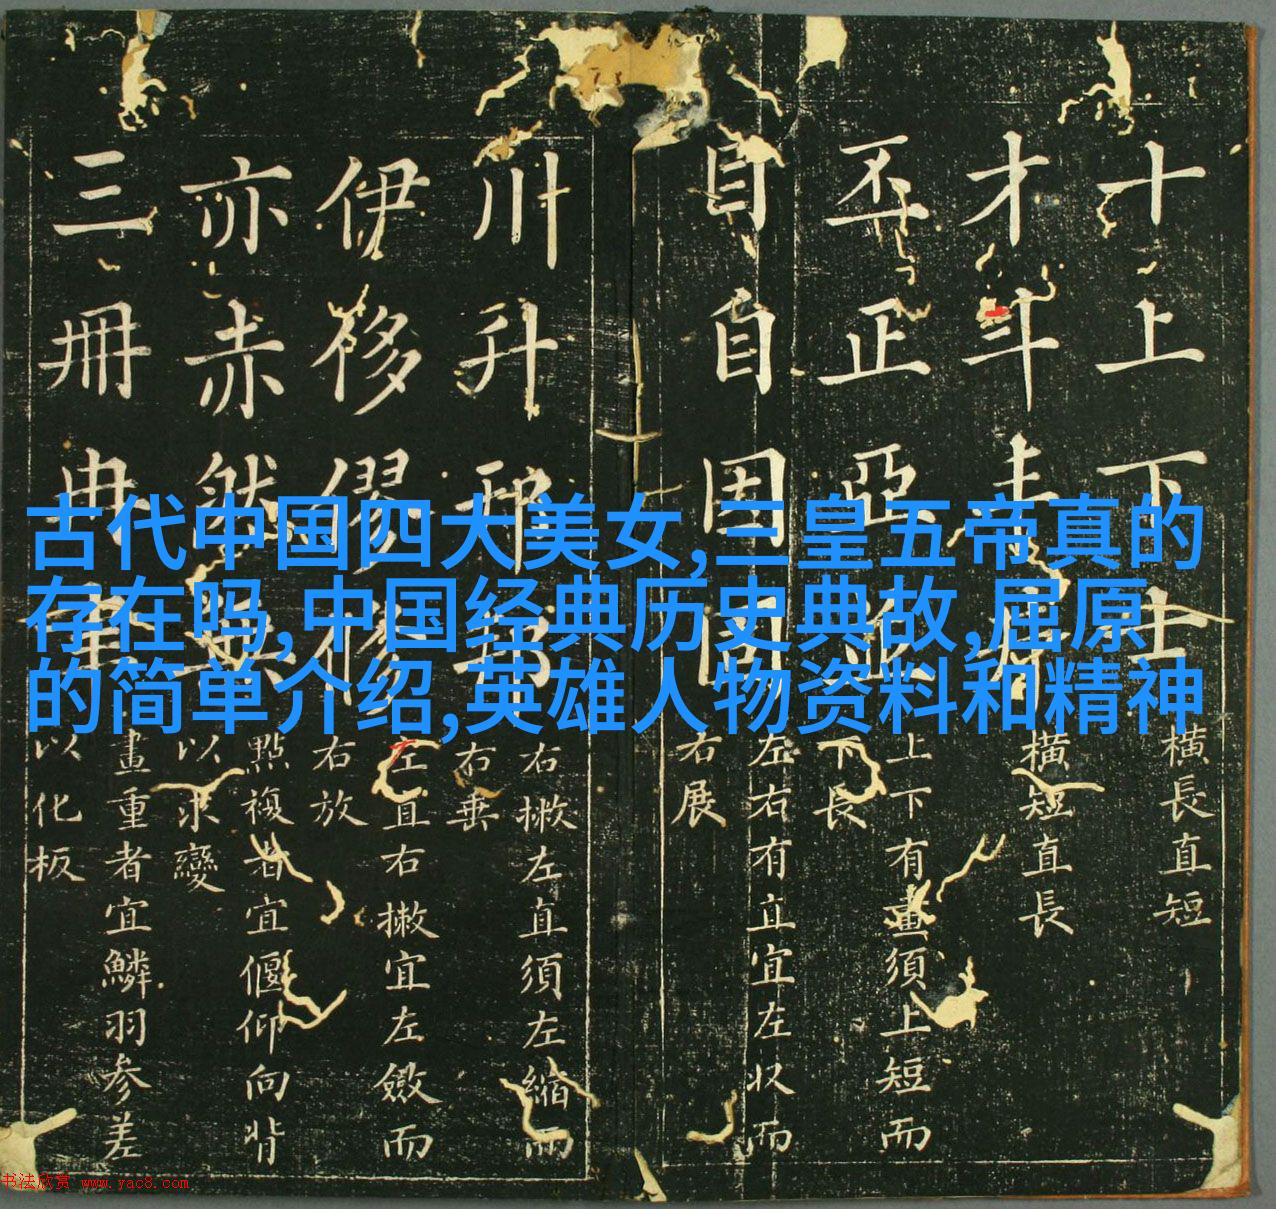 古代中国四大美女,三皇五帝真的
存在吗,中国经典历史典故,屈原
的简单介绍,英雄人物资料和精神
十上下士
橫長直短
才斗
橫短直長
丕正亞並
上下有畫須上短而
下長
目自因固
左右有直宜左收而
右展
川升
右撇左直須左縮而
右垂
伊侈僇修
左直右撇宜左斂而
右放
亦赤然無
點複者宜偃仰向背
以求變
三冊冉
畫重者宜鱗羽参差
以化板
书法欣赏 www.yac8.com